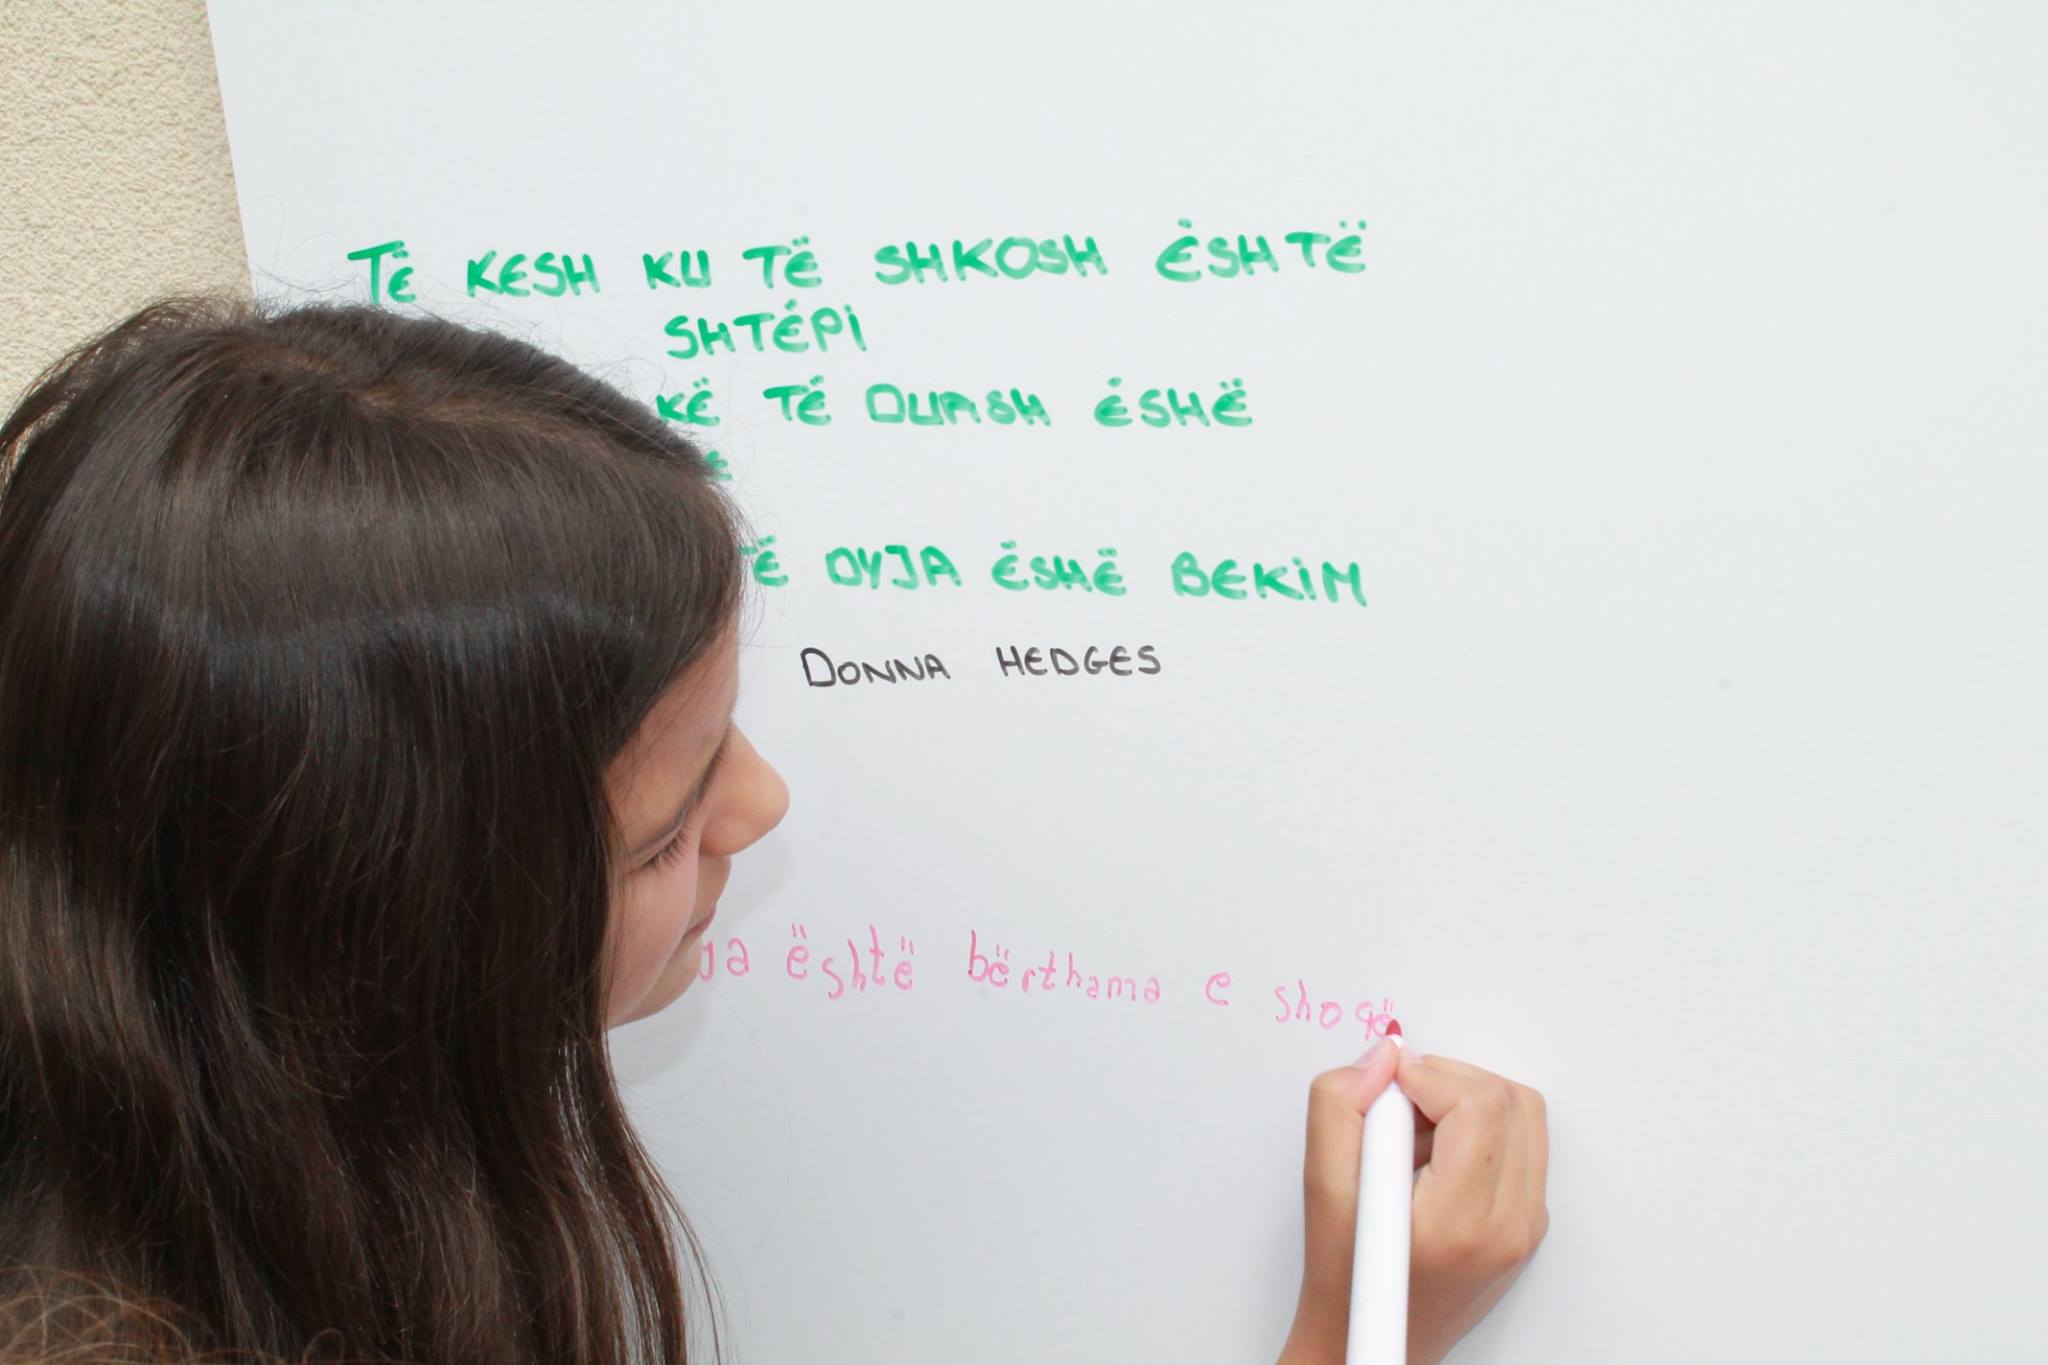 TË KESH KU TË SHKOSH ËSHTË
SHTËPI
KË TË DUASH ËSHË
TË DYJA ËSHË BEKIM
DONNA HEDGES
është bërthama e shoqë